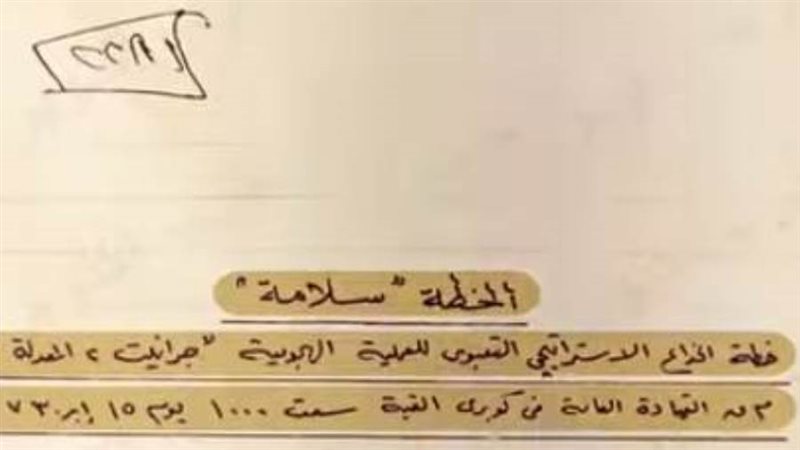 الخطة "سلامة"
خطة الخداع الاستراتيجي التعبوى للعملية الهجومية "جرانيت ٢ المعدلة
القيادة العامة فى كوبرى القبة سعت ١٠٠٠ يوم ١٥ إبر